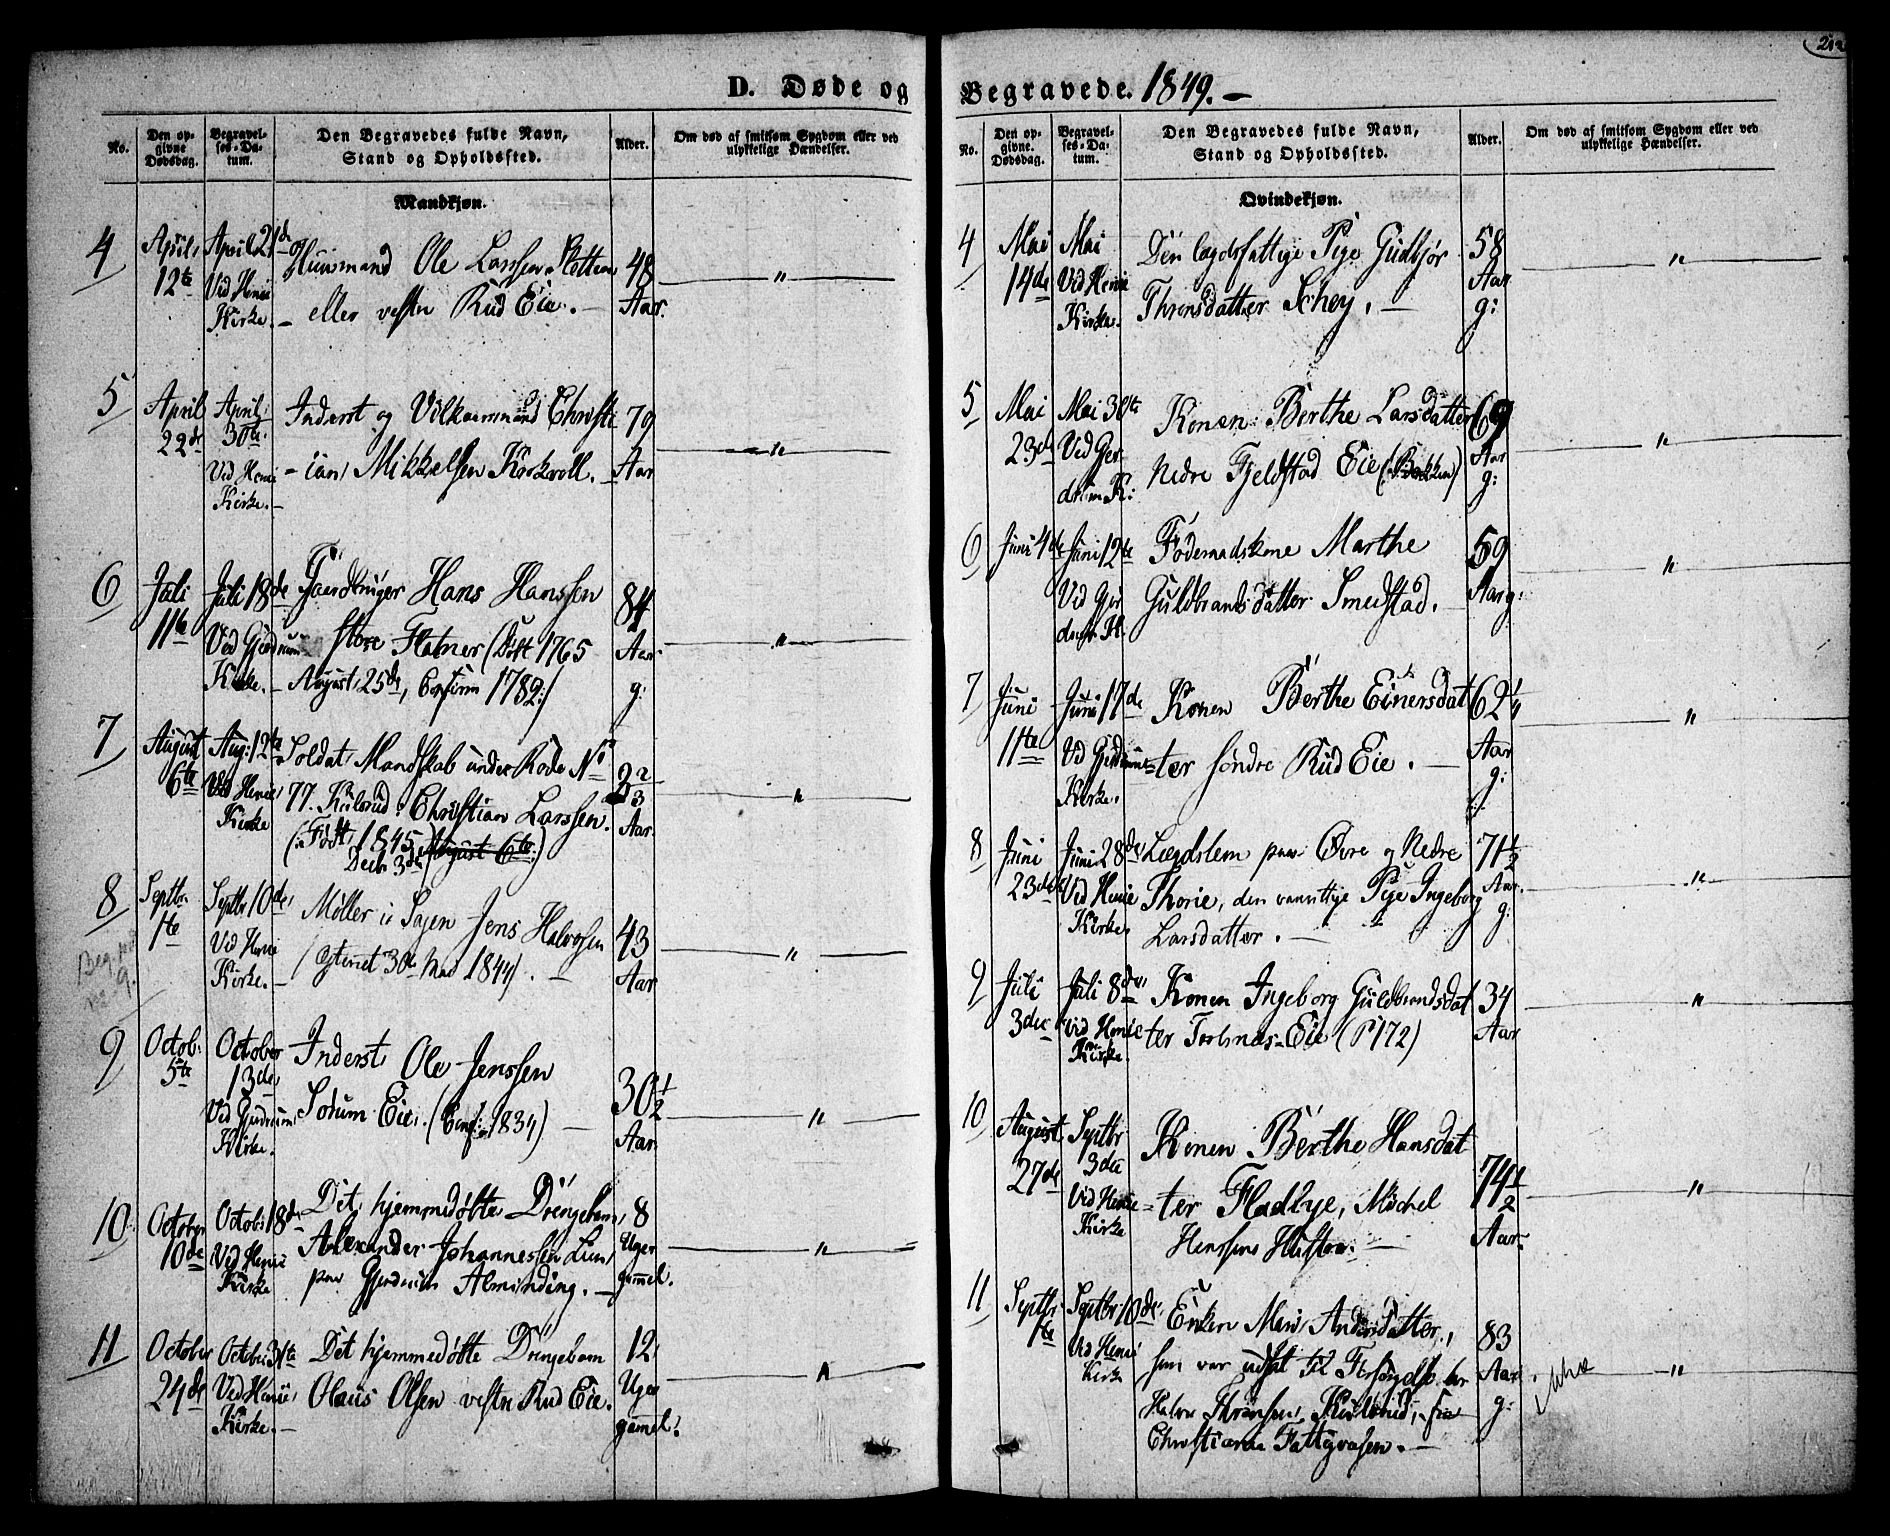 D. Døde og
No.
Den op-
givne
Dødsdag.
Begravel-
ses-Da-
tum.
Den Begravedes fulde Navn,
Stand og Opholdssted.
Alder.
Om død af smitsom Sygdom eller ved
ulykkelige Hændelser.
Mandkjøn.
4
April
12te
April 21de
Ved Henie
Kirke.
Huusmand Ole Larssen
eller vestre Rud Eie.
48
Aar.
"
5
April
22de
April
30te
Ved Henie
Kirke.
Inderst og Christi
-ian Mikkelsen Kirkevoll.
79
Aar
"
6
Juli
11te
Juli 18de
Ved Gjerdrum
Kirke.
Gaardbruger Hans Hanssen
store Flatner (Født 1765
August 25de, Confirm 1782:/
84
Aar
g:
"
7
August
6te
Aug: 12te
Ved Henie
Kirke
Soldat, Mandskab under Rode No
77. Kulsrud: Christian Larssen.
(: Født 1845
Decbr 3de August 6te:)
Aar.
"
8
Septbr.
1te
Septbr 10de
Ved Henie
Kirke.
Møller i Sagen Jens Halvorsen
30te Mai 1844).
43
Aar
"
9
Octob.
5te
October
13de
Ved Gjerdrum
Kirke.
Inderst Ole Jenssen
Sodum Eie. (Conf: 1834)
30 1/2
Aar.
"
10
October
10de
Octob: 18de
Ved Henie
Kirke
Det hjemmedøbte Drengebarn
Alexander Johannessen Lun
paa Gjerdrum Alminding.
8
Uger
gammel.
"
11
October
24de
Octbr: 31te
Ved Henie
Kirke.
Det hjemmedøbte Drengebarn
Olaus Olsen vestre Rud Eie.
12
Uger
gamel.
"
Begravede. 1849.
No.
Den op-
givne
Dødsdag.
Begravel-
ses-Da-
tum.
Den Begravedes fulde Navn,
Stand og Opholdssted.
Alder.
Om død af smitsom Sygdom eller ved
ulykkelige Hændelser.
Qvindekjøn.
4
Mai
14de
Mai
Ved Henie
Kirke.
Den lægdsfattige Pige Gudbjør
Thronsdatter Schøy.
58
Aar
g:
"
5
Mai
23de
Mai 30te
Ved Gjer
drum K:
Konen Berthe Larsdatter
Nedre Fjeldstad Eie (Bakken)
69
Aar
g:
"
6
Juni 4de
Juni 12te
Ved Gjer
drum K.
Føderaadskone Marthe
Guldbrandsdatter Smedstad.
59
Aar g:
"
7
Juni
11te
Juni 17de
Ved Gjerdrum
Kirke.
Konen Berthe Einersdat
-ter søndre Rud Eie.
62
Aar
g:
"
8
Juni
23de
Juni 28de
Ved Henie
Kirke.
Lægdslem paa Øvre og Nedre
Thorie, den vanvittige Pige Ingeborg
Larsdatter.
71 1/2
Aar.
g:
"
9
Juli
3die
Juli 8de
Ved Henie
Kirke.
Konen Ingeborg Guldbrandsdat
ter Eie (P 172)
34
Aar
"
10
August
27de
Septbr
3die
Ved Henie
Kirke
Konen Berthe Hansdat
-ter Fladbye, Michel
Henssens Hustru.
74 1/2
Aar.
"
11
Septbr.
1te
Septbr 10de
Ved Henie
Kirke
Enken Mari Andersdatter,
som var udsat til Forsørgelse hos
Halvor Thronsen Kulsrud, fra
Christiania Fattigvæsen.
83
Aar
g:
"